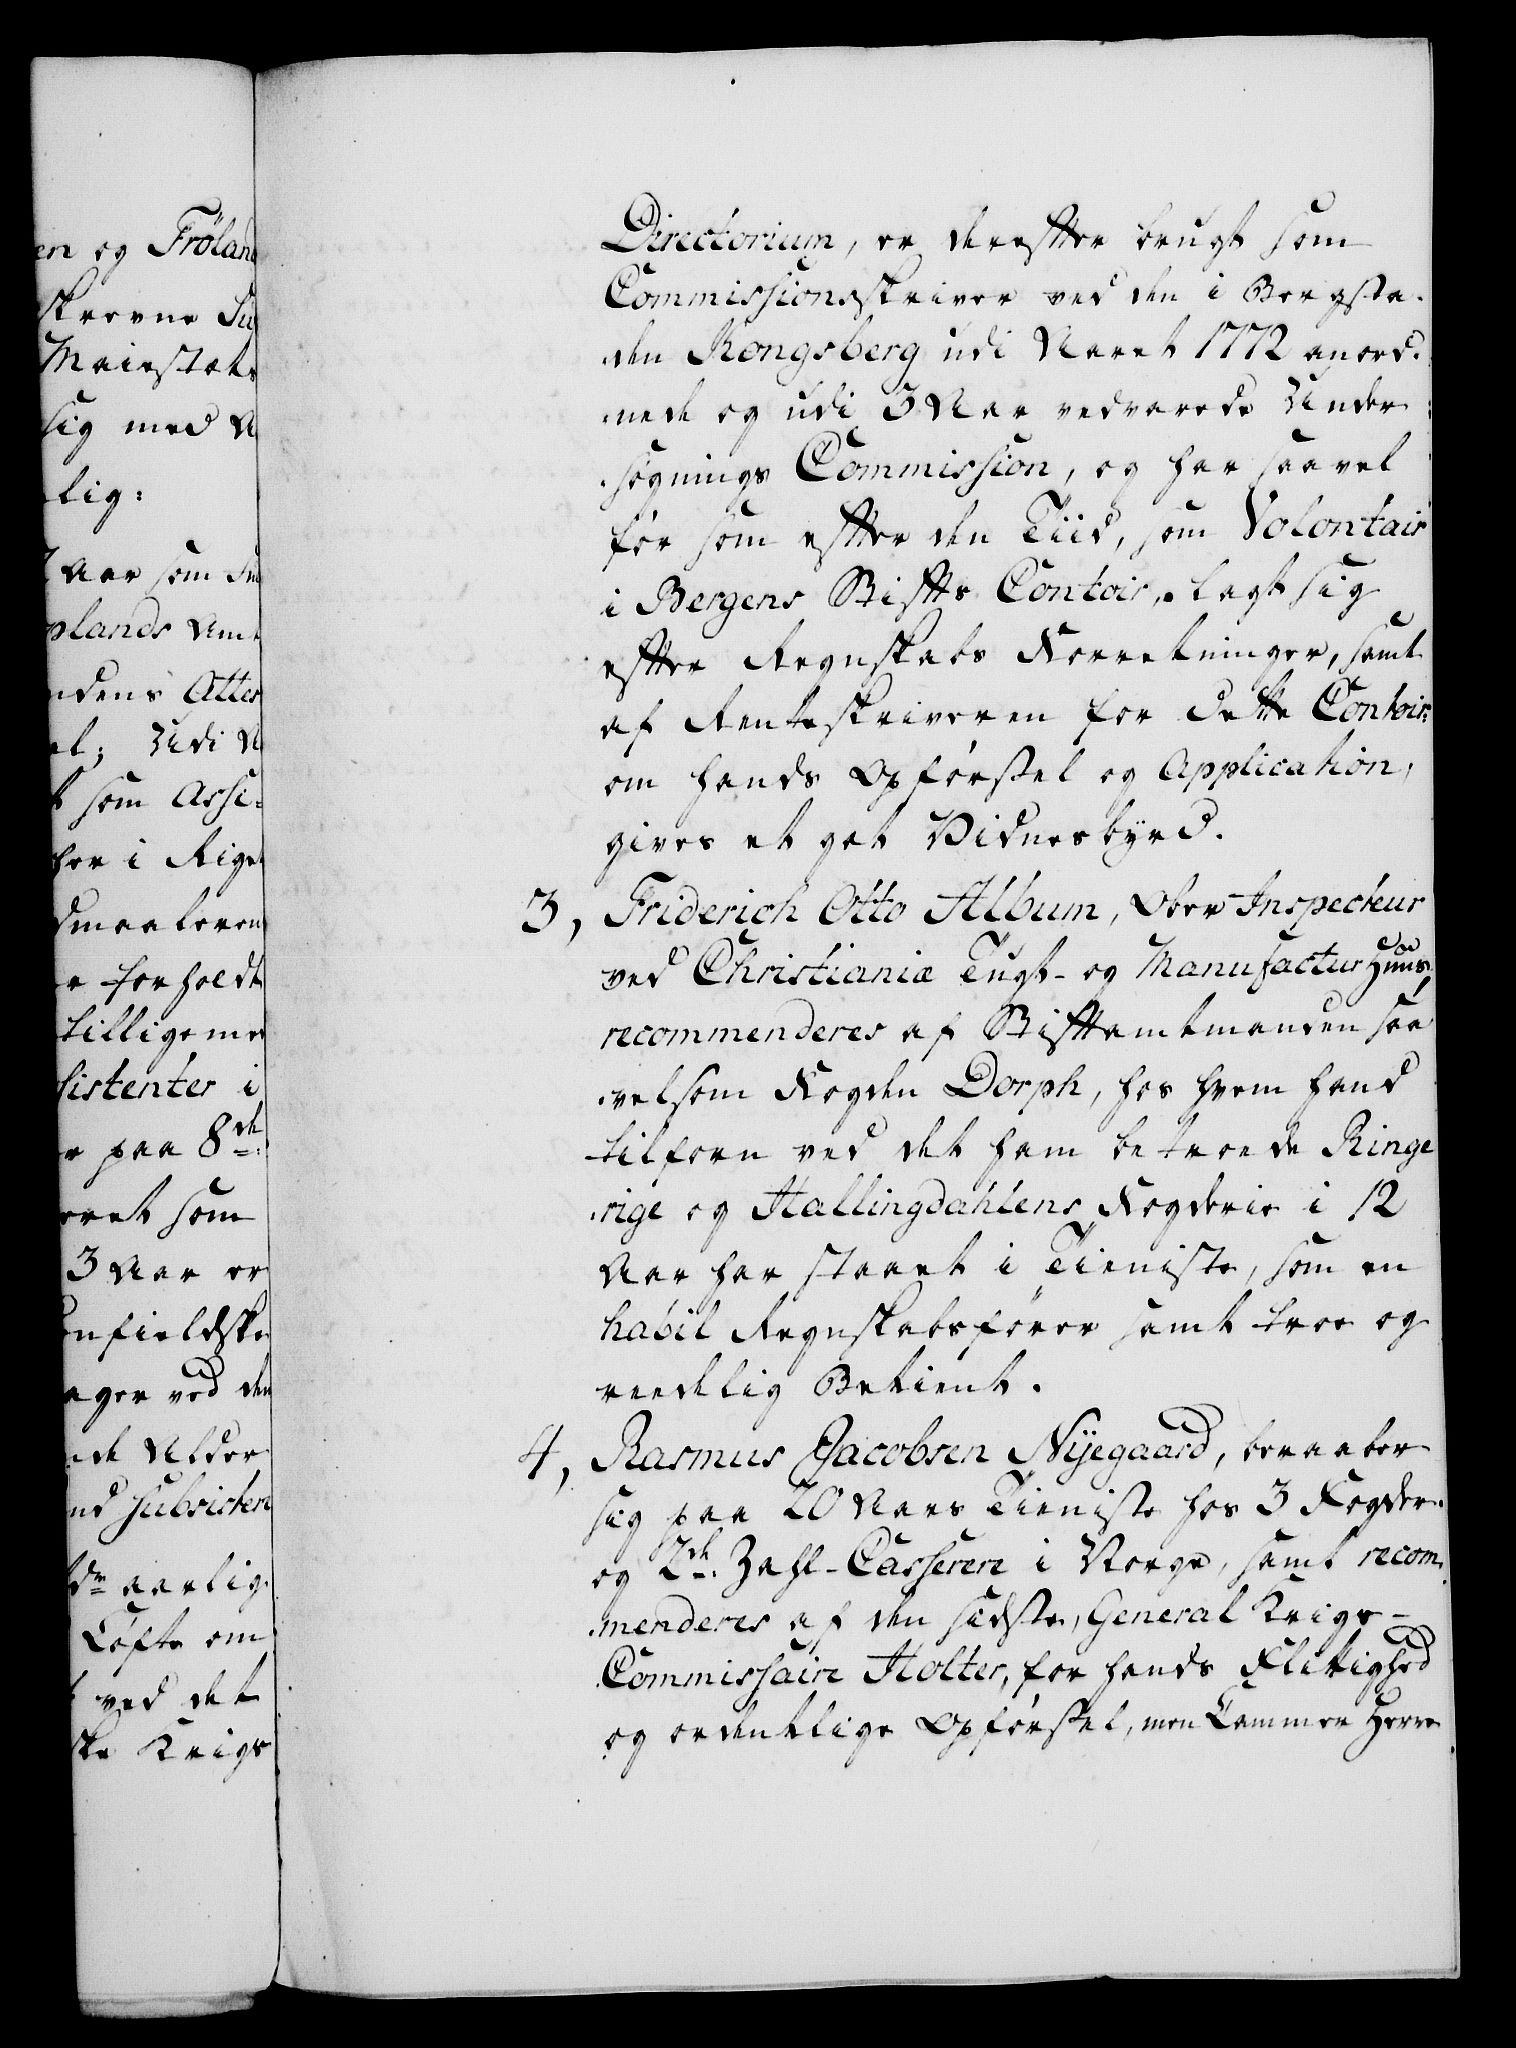 en og Fröland
skrevne Su
Maiestæts
sig med A
lig:
Aar som
plands Amt
ndens Attes
el; Udi A
t som Assi-
her i Rige
dmaaleren
e forholdt
tillige med
sistenter i
r paa 8de
øret som
3 Aar er
nfieldske
ager ved den
nde Alder
nd subsistere
dr aarlig
Löfte om
ved det
ske Krigs
Directorium, er derefter brugt som
Commissionsskriver ved den i Bergsta-
den Kongsberg udi Aaret 1772 anord-
nede og udi 3 Aar vedvarede Under
søgnings Commission, og har saavel
før som efter den Tiid, som Volontair
i Bergens Stifts Contoir, lagt sig
efter Regnskabs Forretninger, samt
af Renteskriveren for dette Contoir
om hands Opførsel og Application,
gives et got Vidnesbyrd.
3, Friderich Otto Album, Ober Inspecteur
ved Christianiæ Tugt- og Manufactur Huus,
recommenderes af Stiftamtmanden saa
velsom Fogden Dorph, hos hvem hand
tilforn ved det ham betroede Ringe
rige og Hallingdahlens Fogderie i 12
Aar har staaet i Tieniste, som en
habil Regnskabsfører samt troe og
reedelig Betient.
4, Rasmus Jacobsen Nÿegaard, beraaber
sig paa 20 Aars Tieniste hos 3 Fogder
og 2de Zahl-Casserere i Norge, samt recom
menderes af den sidste, General Krigs-
Commissaire Holter, for hands Flittighed
og ordentlige Opførsel, men Cammer Herre